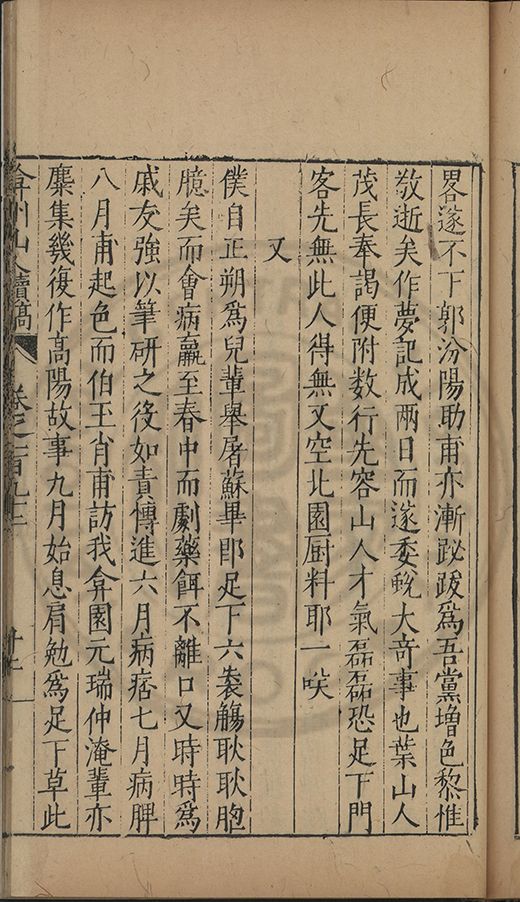 畧遂不下郭汾陽助甫亦漸跂跋爲吾黨增色黎惟
敬逝矣作夢記成兩日而遂委蛻大奇事也葉山人
茂長奉謁便附数行先容山人才氣磊磊恐足下門
客先無此人得無又空北園厨料耶一咲
又
僕自正朔爲兒輩舉屠蘇畢卽足下六袠觴耿耿胞
臆矣而會病羸至春中而劇藥餌不離口又時時爲
戚友強以筆研之役如責慱進六月病痞七月病脾
八月甫起色而伯玉肖甫訪我弇園元瑞仲淹輩亦
麋集幾復作高陽故事九月始息肩勉爲足下草此
弇州山人續稿 卷之一百九十三